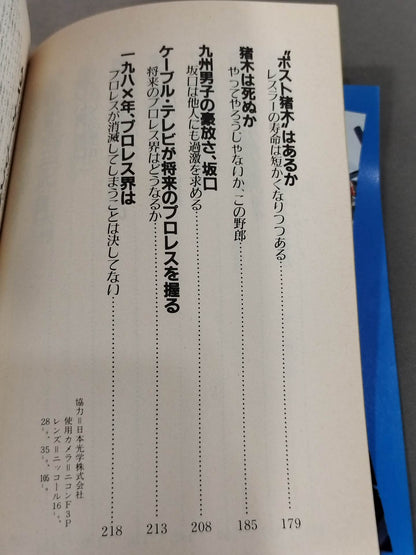 “ポスト猪木”はあるか
レスラーの寿命は短かくなりつつある……179
猪木は死ぬか
やってやろうじゃないか、この野郎……185
九州男子の豪放さ、坂口
坂口は他人にも過激を求める……208
ケーブル・テレビが将来のプロレスを握る
将来のプロレス界はどうなるか……213
一九八×年、プロレス界は
プロレスが消滅してしまうことは決してない……218
協力＝日本光学株式会社
使用カメラ＝ニコンF3P
レンズ＝ニッコール16㍉、
28㍉、35㍉、105㍉